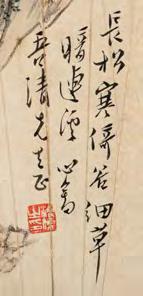 長松寒倚谷細草
暗連溪 心畬
吾清先生正